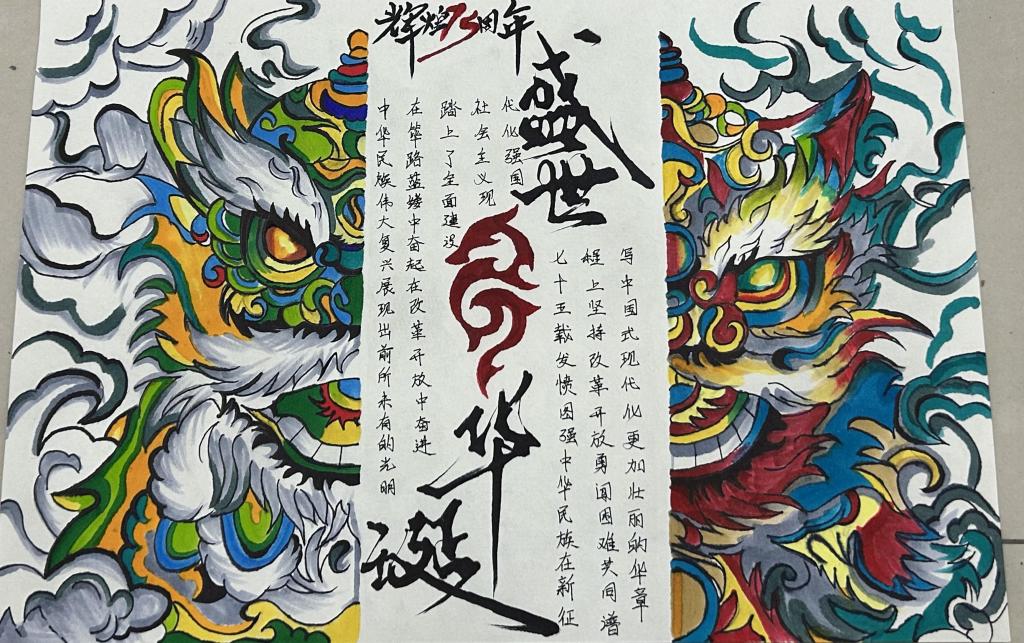 辉煌75周年
盛世
华诞
中华民族伟大复兴展现出前所未有的光明
在筚路蓝缕中奋起在改革开放中奋进
踏上了全面建设
社会主义现
代化强国
七十五载发愤图强中华民族在新征
程上坚持改革开放勇闯困难共同谱
写中国式现代化更加壮丽的华章